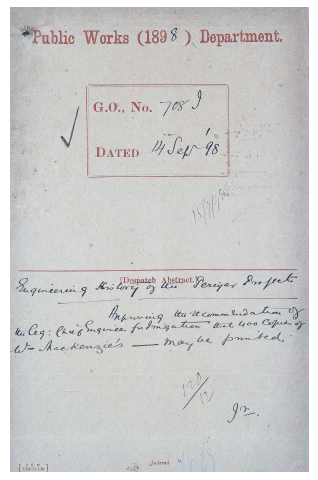 Public Works (1898) Department.
G.O., No. 708 I
DATED 14 Sep '98
[Despatch Abstract.]
Engineering History of the Periyar Project
Approving the recommendation of
the Ag: Chief Engineer for Irrigation that 400 copies of
Mr Mackenzie's — may be printed.
120/12